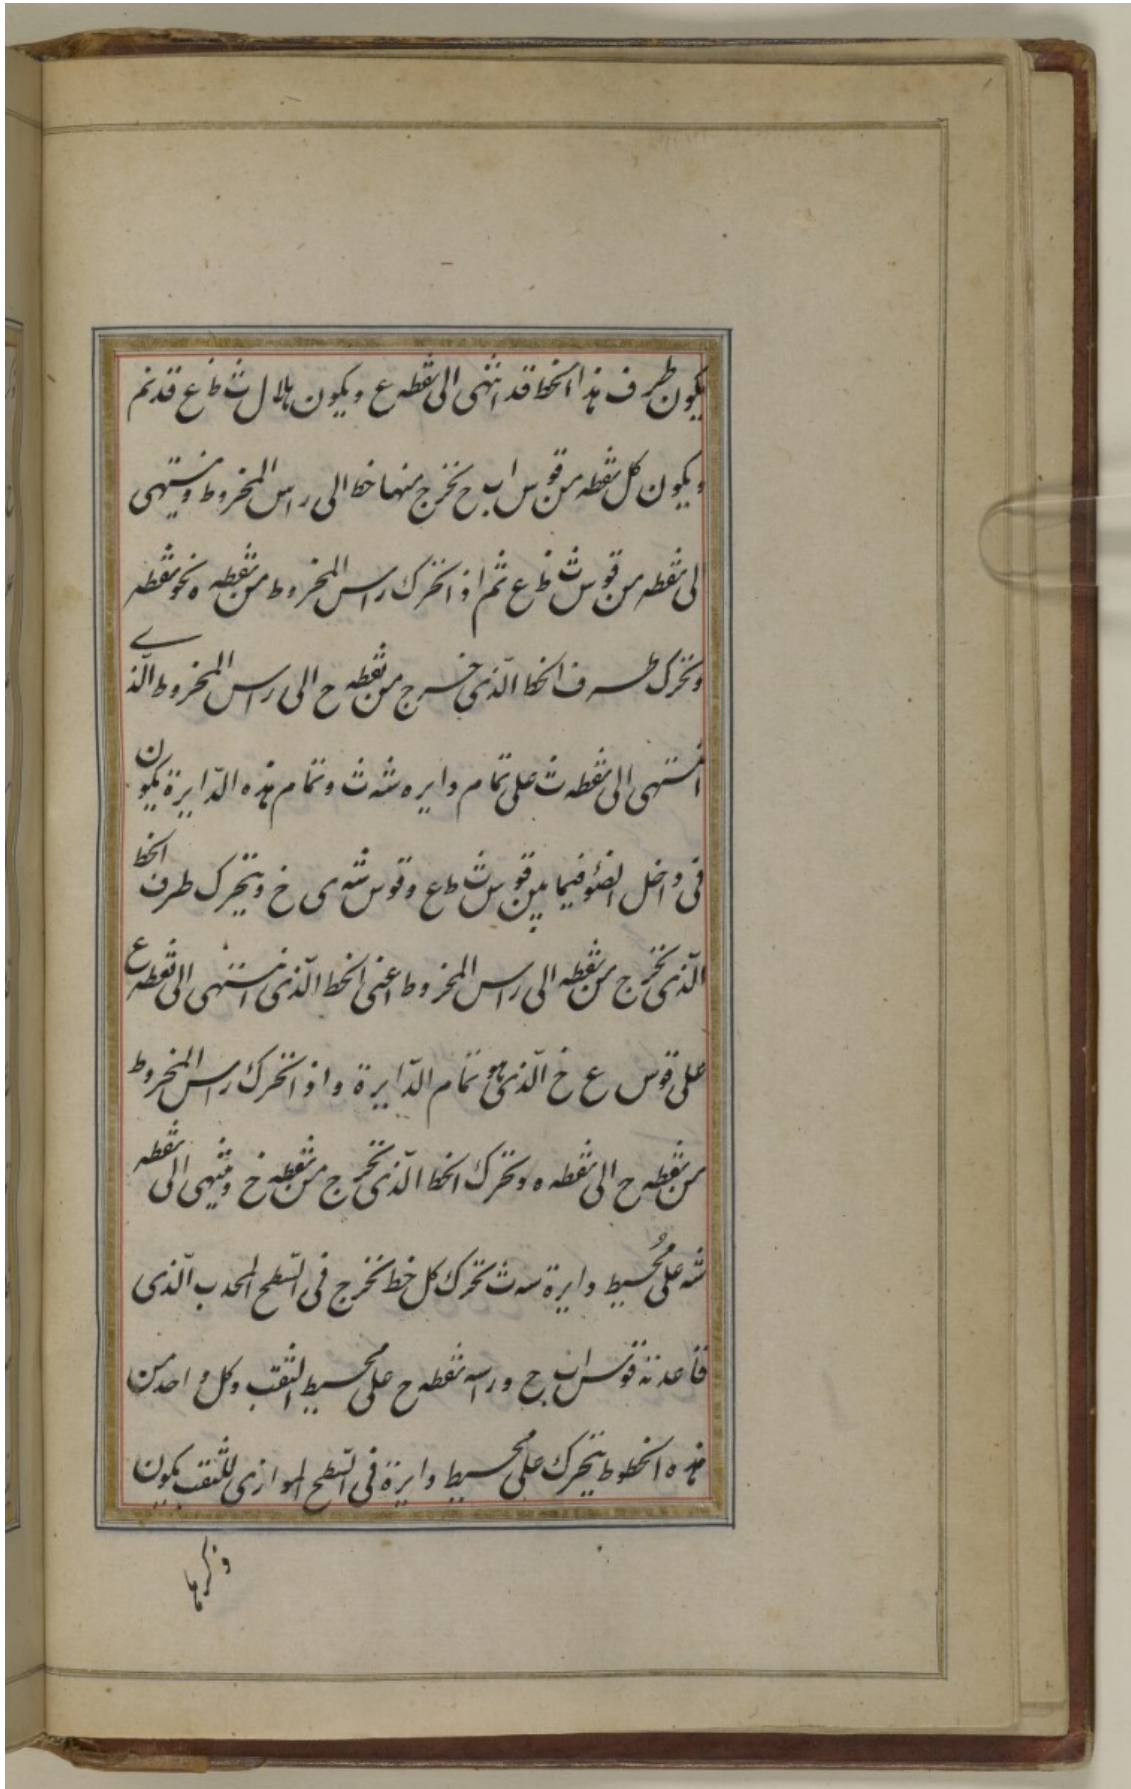 يكون طرف هذا الخط قد انتهى الى نقطه ع ويكون هلال ث ظ ع قد تم
ويكون كل نقطه من قوس اب ح تخرج منها خط الى راس المخروط وينتهى
الى نقطه من قوس ث ظ ع ثم اذا تحرك راس المخروط من نقطه ه نحو نقطه
وتحرك طرف الخط الّذى خرج من نقطه ح الى راس المخروط الّذے
انتهى الى نقطه ث على تمام دايره شه ث وتمام هذه الدّايرة يكون
فى داخل الضؤ فيما بين قوس ث ط ع وقوس شه ى خ ويتحرك طرف الخط
الّذى تخرج من نقطه الى راس المخروط اعنى الخط الّذى انتهى الى نقطه ع
على قوس ع خ الّذى هو تمام الدّايرة واذا تحرك راس المخروط
من نقطه ح الى نقطه ه وتحرك الخط الّذى تخرج من نقطه خ وينتهى الى نقطه
شه على مُحيط دايرة سه ث تحرك كل خط تخرج فى السّطح المحدب الّذى
قاعدته قوس اب ج وراسه نقطه ح على محيط الثقب وكل واحد من
هذه الخطوط يتحرك على محيط دايرة فى السّطح الموازى للثقب يكون
ذكرها